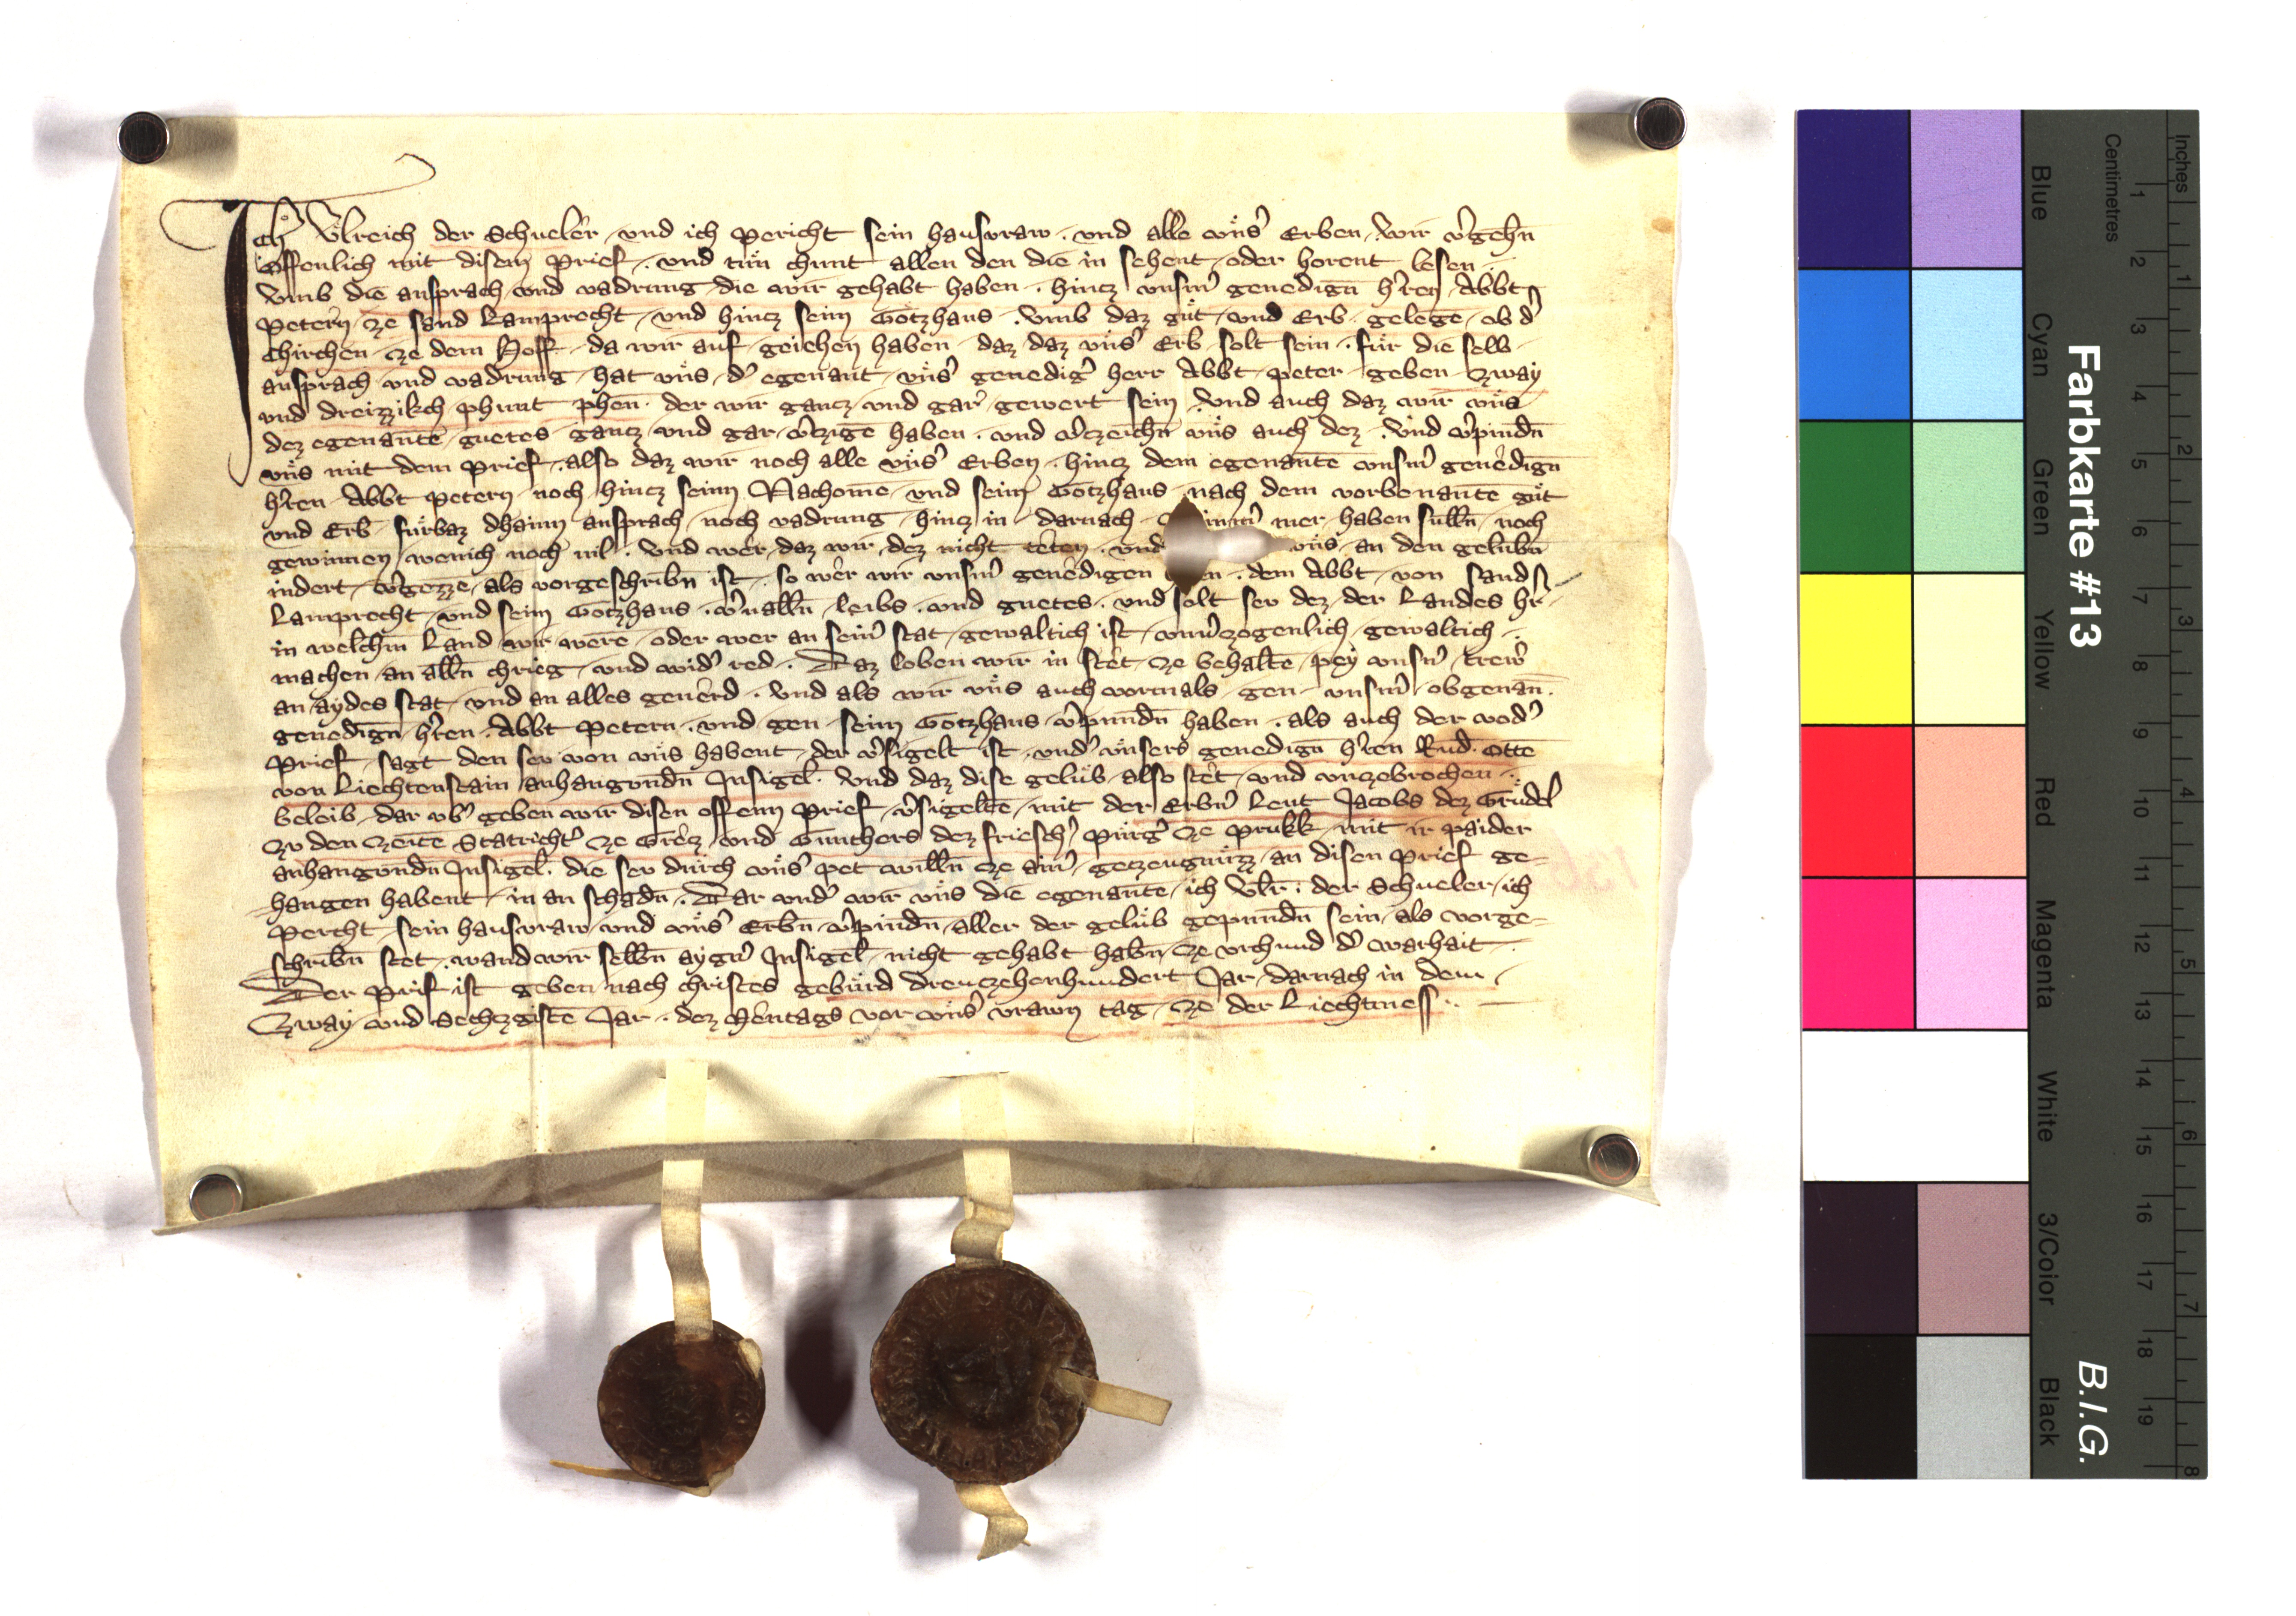 Ich Vͦlreich der Schueler vnd ich Pericht sein hausvraw . vnd alle vnsˀ Erben . wir vˀgehn̄
Offenlich mit disem Prief . vnd tün chunt allen den die in sehent oder horent lesen .
Vmb die ansprach vnd vadrung die wir gehabt haben . hincz vnsm̄ genedign̄ hˀren Abbt
Petern ze sand Lamprecht vnd hincz seim Gotzhaus . Vmb daz guͤt vnd Erb gelege ob dˀ
Chirchen ze dem Hoff da wir auf geiehen haben daz daz vnsˀ Erb solt sein . fuͤr die selb
ansprach vnd vadrung hat vns dˀ egenant vnsˀ genedigˀ herr Abbt Peter geben Zway
vnd dreizzikch phunt phen̄ . der wir gancz vnd gar gewert sein . Vnd auch daz wir vns
dez egenante guetes gancz vnd gar vˀtzige haben . vnd vˀczeichn̄ vns auch dez . Vnd vˀpindn̄
vns mit dem Prief . also daz wir noch alle vnsˀ Erben . hincz dem egenante vnsm̄ genedign̄
hˀren Abbt Petern noch hincz seinn Nachome vnd seim Gotzhaus nach dem vorbenante guͤt
vnd Erb fuͤrbaz dhainn ansprach noch vadrung hincz in darnach mer haben sulln̄ noch
gewinnen wenich noch vil . Vnd wer daz wir dez nicht teten . vnd vns an den gelubn̄
indert vˀgezze als vorgeschribn̄ ist . so wer wir vnsm̄ genedigen dem Abbt von Sand
Lamprecht vnd seim Gotzhaus . vˀualln̄ leibs . vnd guetes . vnd solt sev dez der Landes hr̄
in welchm̄ Land wir were oder wer an seinˀ stat gewaltich ist vnuˀzogenlich gewaltich .
machen an alln̄ chrieg vnd widˀ red . Daz loben wir in stet ze behalte pey vnsm̄ trewˀ
an aydes stat vnd an alles geuerd . Vnd als wir vns auch vormals gen vnsm̄ obgenan̄ .
genedign̄ hˀren . Abbt Petern . vnd gen seim Gotzhaus vˀpundn̄ haben . als auch der vodˀ
Prief sagt den sev von vns habent der vˀsigelt ist vndˀ vnsers genedign̄ hˀren Rud . Otte
von Liechtenstain anhangundn̄ Insigel . Vnd daz dise geluͤb also stet vnd vnzebrochen .
beleib dar vbˀ geben wir disen offenn Prief vˀsigelte mit der Erbnˀ Leut Jacobs dez Gruͤdel
zv den zeite Statrichtˀ ze Grecz vnd Gunthers dez frieschˀ Purgˀ ze Prukk mit ir paider
anhangundn̄ Insigel . die sev durch vnsˀ pet willn̄ ze ainˀ getzeugnuͤzz an disen Prief ge=
hangen habent in an schadn̄ . Dar vndˀ wir vns die egenante ich Vlr̄ . der Schueler ich
Percht sein hausvraw vnd vnsˀ Erbn̄ vˀpindn̄ aller der geluͤb gepundn̄ sein als vorge=
schribn̄ stet . wand wir selbn̄ aygnˀ Insigel nicht gehabt habn̄ ze vrchund dˀ warhait .
Der Prif ist geben nach christes gebuͤrd dreuczehenhundert Jar darnach in dem
Zway vnd Sechzgiste Jar . dez Mentags vor vnsˀ vrawn tag ze der Liechtmess .
136
Farbkarte #13
B.I.G.
Inches
Centimetres
1 2 3 4 5 6 7 8 9 10 11 12 13 14 15 16 17 18 19
1 2 3 4 5 6 7 8
Blue
Cyan
Green
Yellow
Red
Magenta
White
3/Color
Black